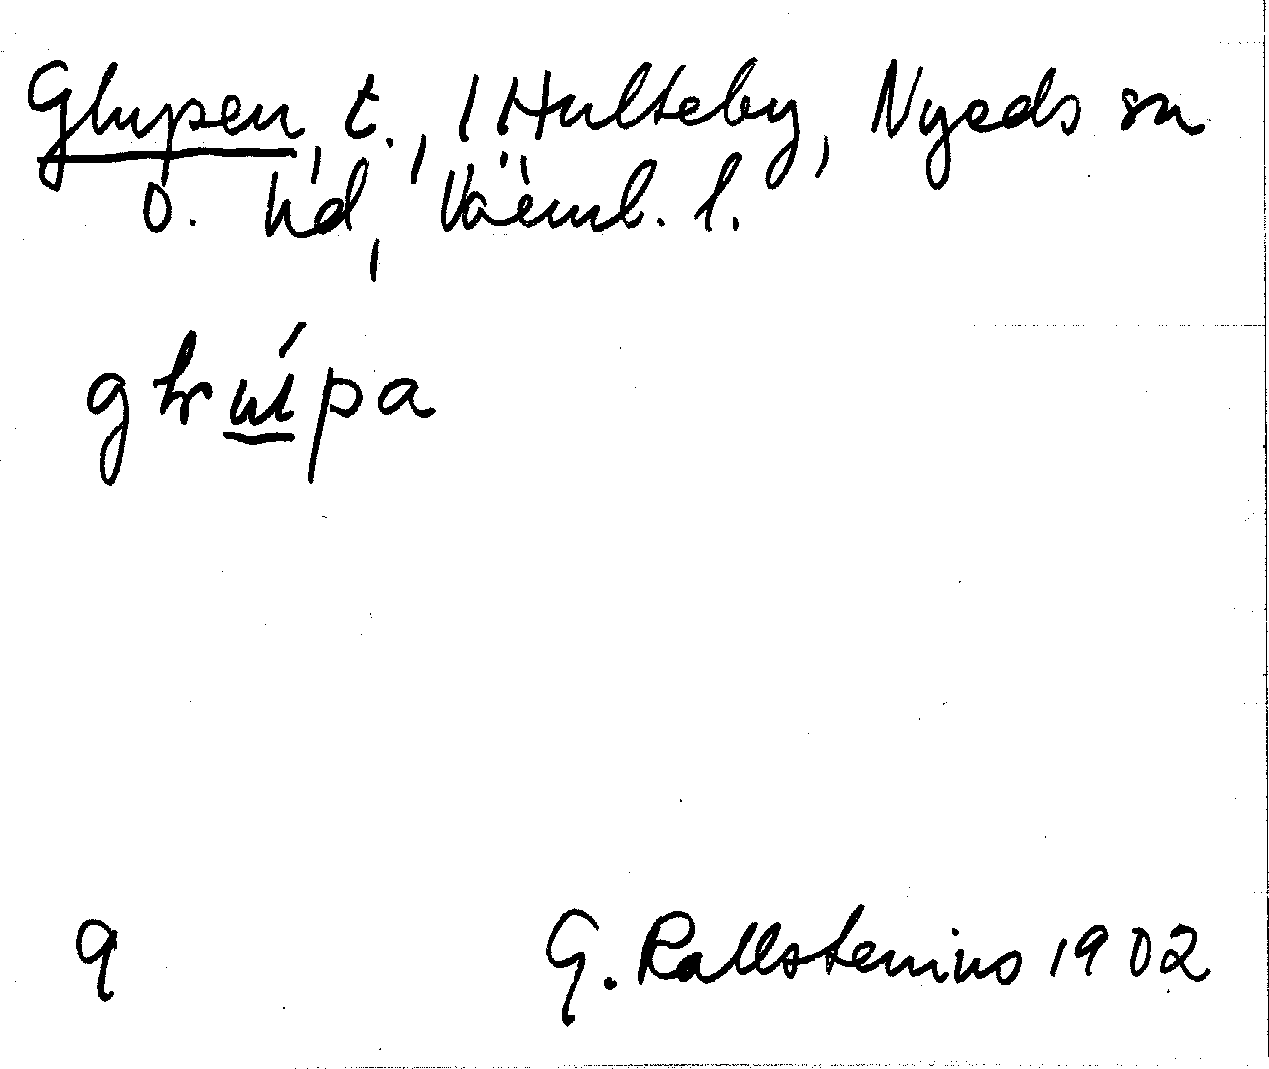 Glupen, t., 1 Hulteby, Nyeds sn
o. hd, Värml. l.
9 G. Kallstenius 1902